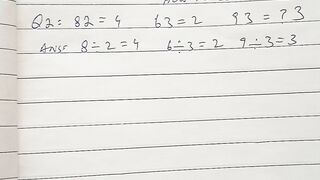 Q2: 82 = 4 63 = 2 93 = ? 3
Ans: 8 ÷ 2 = 4 6 ÷ 3 = 2 9 ÷ 3 = 3